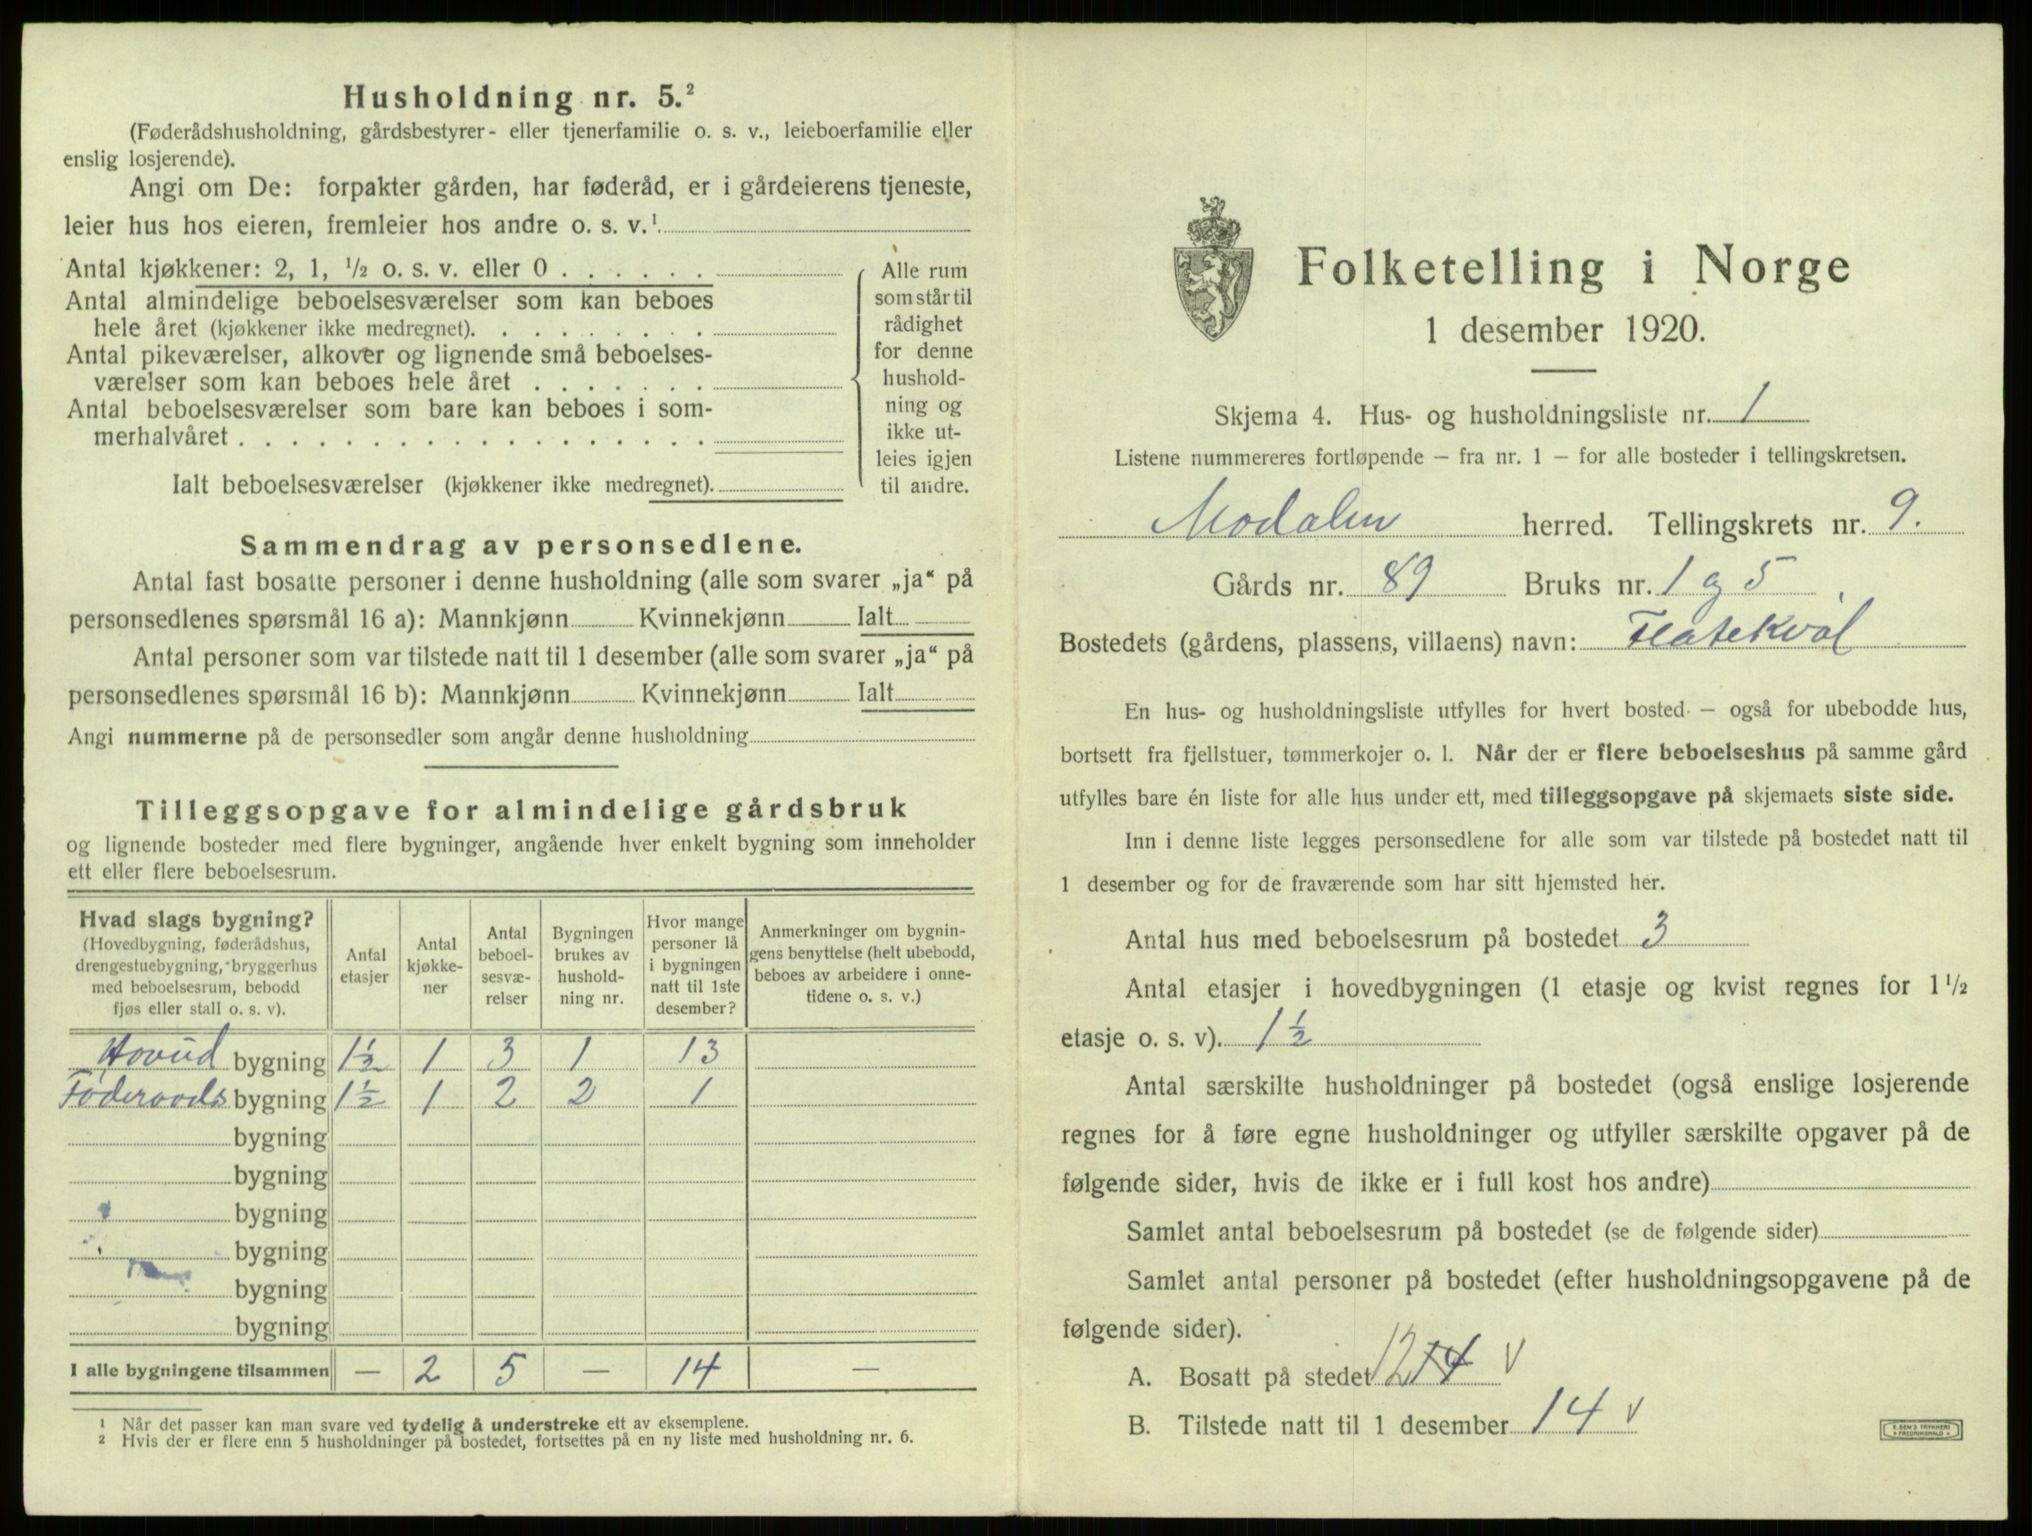 Husholdning nr. 5.²
(Føderådshusholdning, gårdsbestyrer- eller tjenerfamilie o. s. v., leieboerfamilie eller
enslig losjerende).
Angi om De: forpakter gården, har føderåd, er i gårdeierens tjeneste,
leier hus hos eieren, fremleier hos andre o. s. v.¹
Antal kjøkkener: 2, 1, ½ o. s. v. eller 0 . . . . . .
Antal almindelige beboelsesværelser som kan beboes
hele året (kjøkkener ikke medregnet). . . . . . . . .
Antal pikeværelser, alkover og lignende små beboelses-
værelser som kan beboes hele året . . . . . . .
Antal beboelsesværelser som bare kan beboes i som-
merhalvåret . . . . . . . . . . . . . . . . . .
Ialt beboelsesværelser (kjøkkener ikke medregnet).
Alle rum
som står til
rådighet
for denne
hushold-
ning og
ikke ut-
leies igjen
til andre.
Sammendrag av personsedlene.
Antal fast bosatte personer i denne husholdning (alle som svarer „ja“ på
personsedlenes spørsmål 16 a): Mannkjønn Kvinnekjønn Ialt
Antal personer som var tilstede natt til 1 desember (alle som svarer „ja“ på
personsedlenes spørsmål 16 b): Mannkjønn Kvinnekjønn Ialt
Angi nummerne på de personsedler som angår denne husholdning
Tilleggsopgave for almindelige gårdsbruk
og lignende bosteder med flere bygninger, angående hver enkelt bygning som inneholder
ett eller flere beboelsesrum.
Hvad slags bygning?
(Hovedbygning, føderådshus,
drengestuebygning, bryggerhus
med beboelsesrum, bebodd
fjøs eller stall o. s. v).
Antal
etasjer
Antal
kjøkke-
ner
Antal
beboel-
sesvæ-
relser
Bygningen
brukes av
hushold-
ning nr.
Hvor mange
personer lå
i bygningen
natt til 1ste
desember?
Anmerkninger om bygnin-
gens benyttelse (helt ubebodd,
beboes av arbeidere i onne-
tidene o. s. v.)
Hovud bygning 1½ 1 3 1 13
Føderaads bygning 1½ 1 2 2 1
bygning
bygning
bygning
bygning
bygning
bygning
I alle bygningene tilsammen — 2 5 — 14 —
¹ Når det passer kan man svare ved tydelig å understreke ett av eksemplene.
² Hvis der er flere enn 5 husholdninger på bostedet, fortsettes på en ny liste med husholdning nr. 6.
Folketelling i Norge
1 desember 1920.
Skjema 4. Hus- og husholdningsliste nr. 1
Listene nummereres fortløpende — fra nr. 1 — for alle bosteder i tellingskretsen.
Modalen herred. Tellingskrets nr. 9.
Gårds nr. 89 Bruks nr. 1 og 5
Bostedets (gårdens, plassens, villaens) navn: Flatekvål
En hus- og husholdningsliste utfylles for hvert bosted — også for ubebodde hus,
bortsett fra fjellstuer, tømmerkojer o. l. Når der er flere beboelseshus på samme gård
utfylles bare én liste for alle hus under ett, med tilleggsopgave på skjemaets siste side.
Inn i denne liste legges personsedlene for alle som var tilstede på bostedet natt til
1 desember og for de fraværende som har sitt hjemsted her.
Antal hus med beboelsesrum på bostedet 3
Antal etasjer i hovedbygningen (1 etasje og kvist regnes for 1½
etasje o. s. v). 1½
Antal særskilte husholdninger på bostedet (også enslige losjerende
regnes for å føre egne husholdninger og utfyller særskilte opgaver på de
følgende sider, hvis de ikke er i full kost hos andre)
Samlet antal beboelsesrum på bostedet (se de følgende sider)
Samlet antal personer på bostedet (efter husholdningsopgavene på de
følgende sider).
A. Bosatt på stedet 12 14 v
B. Tilstede natt til 1 desember 14 v